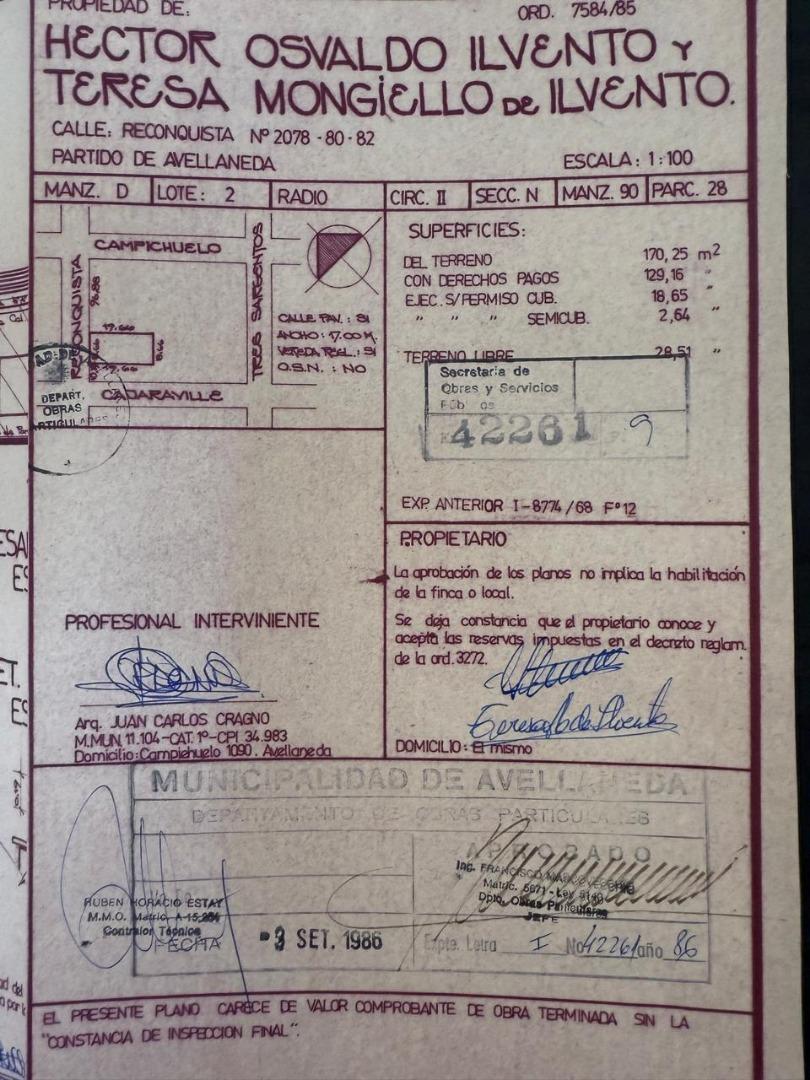 PROPIEDAD DE:
ORD. 7584/85
HECTOR OSVALDO ILVENTO Y
TERESA MONGIELLO DE ILVENTO.
CALLE: RECONQUISTA Nº 2078-80-82
PARTIDO DE AVELLANEDA
ESCALA: 1:100
MANZ. D LOTE: 2 RADIO CIRC. II SECC. N MANZ. 90 PARC. 28
CAMPICHUELO
RECONQUISTA
TRES SARGENTOS
17.66
8.66
CADARAVILLE
CALLE PAV.: SI
ANCHO: 17.00 M.
VEREDA REGL.: SI
O.S.N.: NO
DEPART.
OBRAS
PARTICULARES
SUPERFICIES:
DEL TERRENO 170,25 m2
CON DERECHOS PAGOS 129,16 "
EJEC. S/PERMISO CUB. 18,65 "
" " " SEMICUB. 2,64 "
TERRENO LIBRE 28,51 "
Secretaría de
Obras y Servicios
42261 9
EXP. ANTERIOR I-8774/68 Fº12
PROPIETARIO
La aprobación de los planos no implica la habilitación
de la finca o local.
Se deja constancia que el propietario conoce y
acepta las reservas impuestas en el decreto reglam.
de la ord. 3272.
DOMICILIO: El mismo
PROFESIONAL INTERVINIENTE
Arq. JUAN CARLOS CRAGNO
M.MUN. 11.104-CAT. 1º-CPI 34.983
Domicilio: Campichuelo 1090. Avellaneda
MUNICIPALIDAD DE AVELLANEDA
DEPARTAMENTO DE OBRAS PARTICULARES
APROBADO
Ing. FRANCISCO
Matric. 5671 - Ley
Dpto. Obras Particulares
JEFE
RUBEN HORACIO ESTAY
M.M.O. Matric. A-15.
Contralor Técnico
FECHA
-3 SET. 1986
Expte. Letra I No 42261 año 86
EL PRESENTE PLANO CARECE DE VALOR COMPROBANTE DE OBRA TERMINADA SIN LA
"CONSTANCIA DE INSPECCION FINAL".